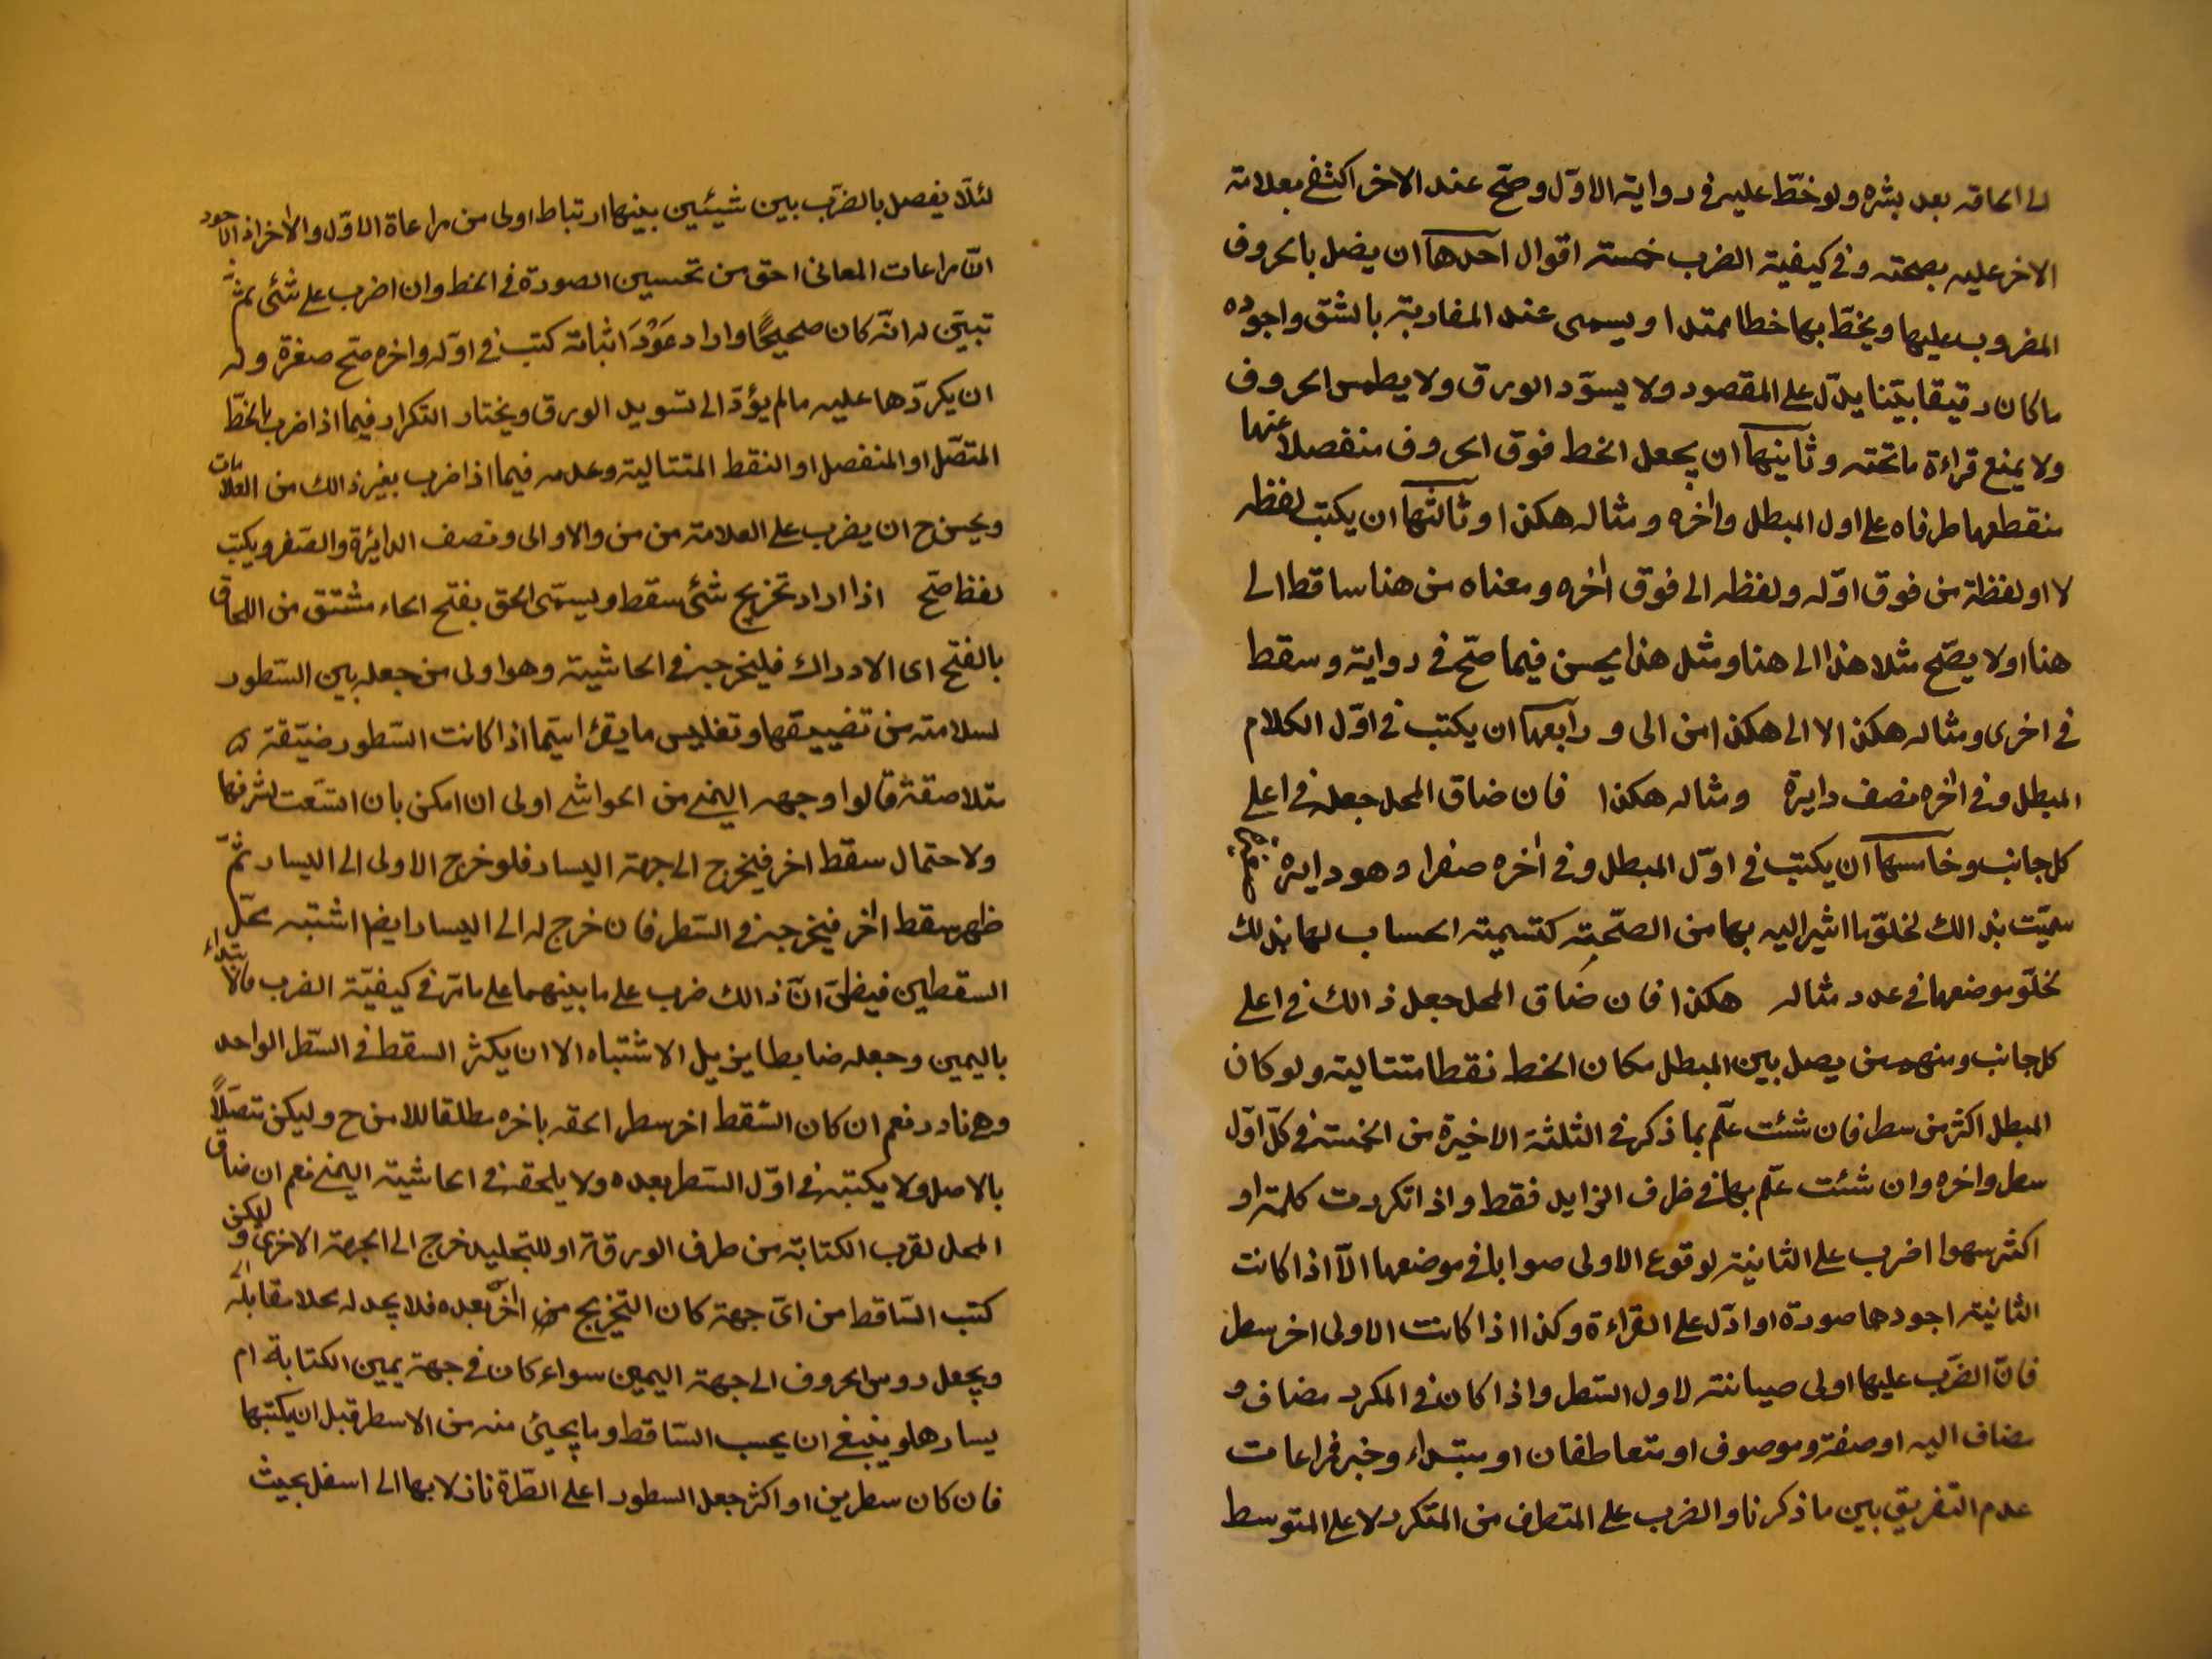 الى الحاقه بعد بشره ولو خطّ عليه فى رواية الاوّل وصحّ عند الاخر اكتفى بعلامة
الاخر عليه بصحته وفى كيفية الضرب خمسة اقوال احدها ان يصل بالحروف
المضروب عليها ويخطّ بها خطا ممتدا ويسمى عند المغاربة بالشق واجوده
ما كان رقيقا بيّنا يدلّ على المقصود ولا يسوّد الورق ولا يطمس الحروف
ولا يمنع قراءة ما تحته وثانيها ان يجعل الخط فوق الحروف منفصلا عنها
منقطعها طرفاه على اول المبطل واخره ومثاله هكذا وثالثها ان يكتب لفظه
لا او لفظة من فوق اوّله ولفظه الى فوق اخره ومعناه من هنا ساقط الى
هنا اولا يصّح مثلا هذا الى هنا ومثل هذا يحسن فيما صحّ فى رواية وسقط
فى اخرى ومثاله هكذ الا الى هكذا من الى ورابعها ان يكتب فى اوّل الكلام
المبطل وفى اخره نصف دايرة ومثاله هكذا فان ضاق المحل جعله فى اعلى
كل جانب وخامسها ان يكتب فى اوّل المبطل وفى اخره صفرا وهو دايره
سمّيت بذالك لخلوّ ما اشير اليه بها من الصحّة كتسمية الحساب لها بذلك
لخلوّ موضعها فى عدد مثاله هكذا فان ضاق المحل جعل ذالك فى اعلى
كل جانب ومنهم من يصل بين المبطل مكان الخط نقطا متتالية ولو كان
المبطل اكثر من سطر فان شئت علّم بما ذكر فى الثلثة الاخيرة من الخمسة فى كلّ اوّل
سطر واخره وان شئت علّم بها فى طرف الزايد فقط واذا تكررت كلمة او
اكثر سهوا اضرب على الثانية لوقوع الاولى صوابا فى موضعها الّا اذا كانت
الثانية اجودها صورة او ادّل على القراءة وكذا اذا كانت الاولى اخر سطر
فانّ الضّرب عليها اولى صيانة لاول السّطر واذا كان فى المكرر مضاف و
مضاف اليه او صفة وموصوف او متعاطفان او مبتداء وخبر فراعات
عدم التفريق بين ما ذكرنا والضرب على المتطرف من المتكرر لا على المتوسط
لئلّا يفصل بالضّرب بين شيئين بينهما ارتباط اولى من مراعاة الاوّل والاخر اذ الاجود
انّ مراعات المعانى احق من تحسين الصورة فى الخط وان اضرب على شئى ثمّ
تبيّن له انّه كان صحيحًا واراد عَوْدَ اثباته كتب فى اوّله واخره صّح صغرة وله
ان يكرّرها عليه ما لم يؤدّ الى تسويد الورق ويختار التكرار فيما اذا ضرب بالخطّ
المتصّل او المنفصل او النقط المتتالية وعدمه فيما اذا ضرب بغير ذالك من العلامات
ويحسن ح ان يضرب على العلامة من من والا والى ونصف الدائرة والصّفر ويكتب
لفظ صّح اذا اراد تخريج شئى سقط ويسمّى لحق بفتح الحاء مشتق من اللحاق
بالفتح اى الادراك فليخرجه فى الحاشية وهو اولى من جعله بين السّطور
لسلامته من تضييقها وتغليس ما يقرا سيّما اذا كانت السّطور ضيّقة
متلاصقة قالوا وجهه اليمنى من الحواشى اولى ان امكن بان اتّسعت لشرفها
ولاحتمال سقط اخر فيخرج الى جهة اليسار فلو خرج الاولى الى اليسار ثمّ
ظهر سقط اخر فيخرجه فى السّطر فان خرج له الى اليسار ايضا اشتبه محلّ
السقطين فيظنّ انّ ذالك ضرب على ما بينهما على ما مرّ فى كيفيّة الضرب فالابتداء
باليمين وجعله ضابطا يزيل الاشتباه الا ان يكثر السقط فى السّطر الواحد
وهى نادر نعم ان كان السّقط اخر سطر الحقه باخره مطلقا للامن ح وليكن متصّلًا
بالاصل ولا يكتبه فى اوّل السّطر بعده ولا يلحقه فى الحاشية اليمنى نعم ان ضاق
المحل لقرب الكتابة من طرف الورقة او للتجليد خرج الى الجهة الاخرى وليكن
كتب السّاقط من اىّ جهة كان التّخريج من اخر بعده فلا يجد له محلا مقابله
ويجعل روس الحروف الى جهة اليمين سواء كان فى جهة يمين الكتابة ام
يسارها وينبغى ان يحسب السّاقط وما يجيئ منه من الاسطر قبل ان يكتبها
فان كان سطرين او اكثر جعل السطور اعلى الطّرة نازلا بها الى اسفل بحيث